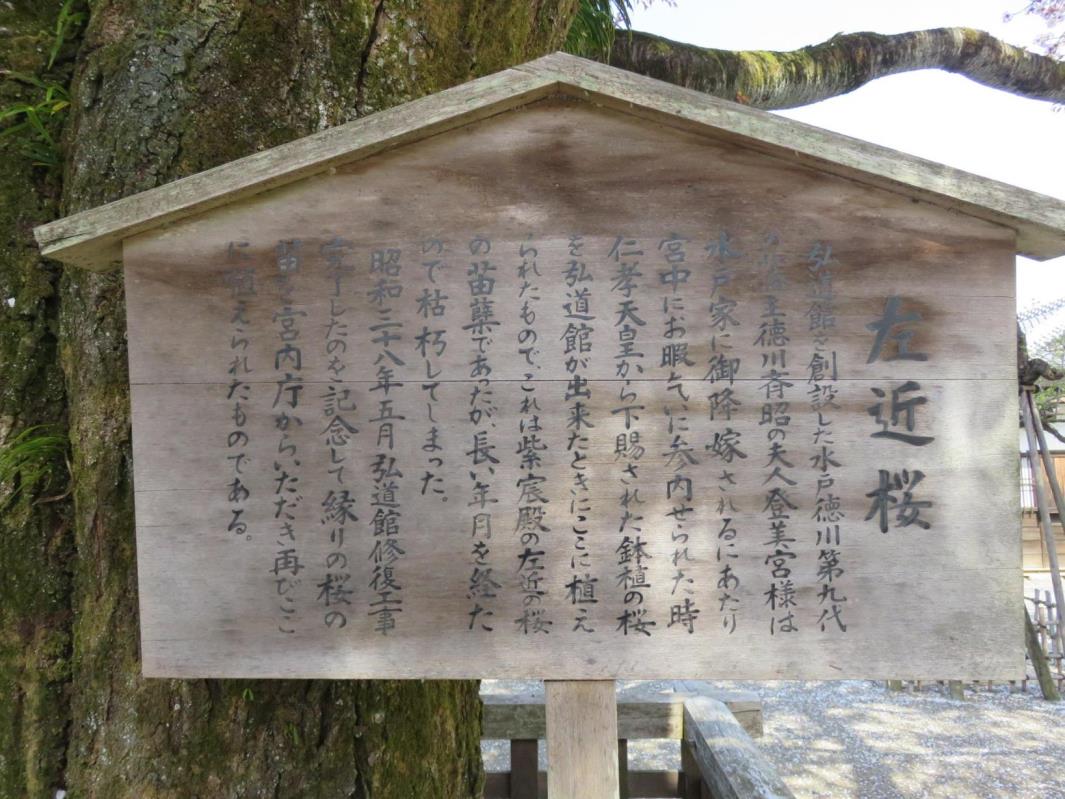 左近桜
弘道館を創設した水戸徳川第九代
の藩主徳川斉昭の夫人登美宮様は
水戸家に御降嫁されるにあたり
宮中にお暇乞に参内せられた時
仁孝天皇から下賜された鉢植の桜
を弘道館が出来たときにここに植え
られたもので、これは紫宸殿の左近の桜
の苗蘖であったが、長い年月を経た
ので枯朽してしまった。
昭和三十八年五月弘道館修復工事
完了したのを記念して縁りの桜の
苗を宮内庁からいただき再びここ
に植えられたものである。